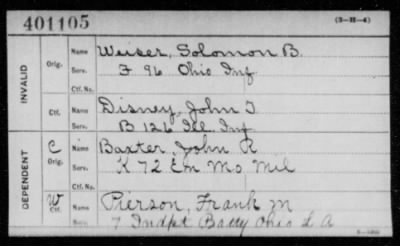 401105
(3-H-4)
INVALID
Orig. Name Weiser, Solomon B.
Serv. F 96 Ohio Inf
Ctf. No.
Ctf. Name Disney, John T
Serv. B 126 Ill Inf
DEPENDENT
C Orig. Name Baxter, John R
Serv. K 72 En Mo Mil
Ctf. No.
W Ctf. Name Pierson, Frank M
Serv. 7 Indpt Batty Ohio L A